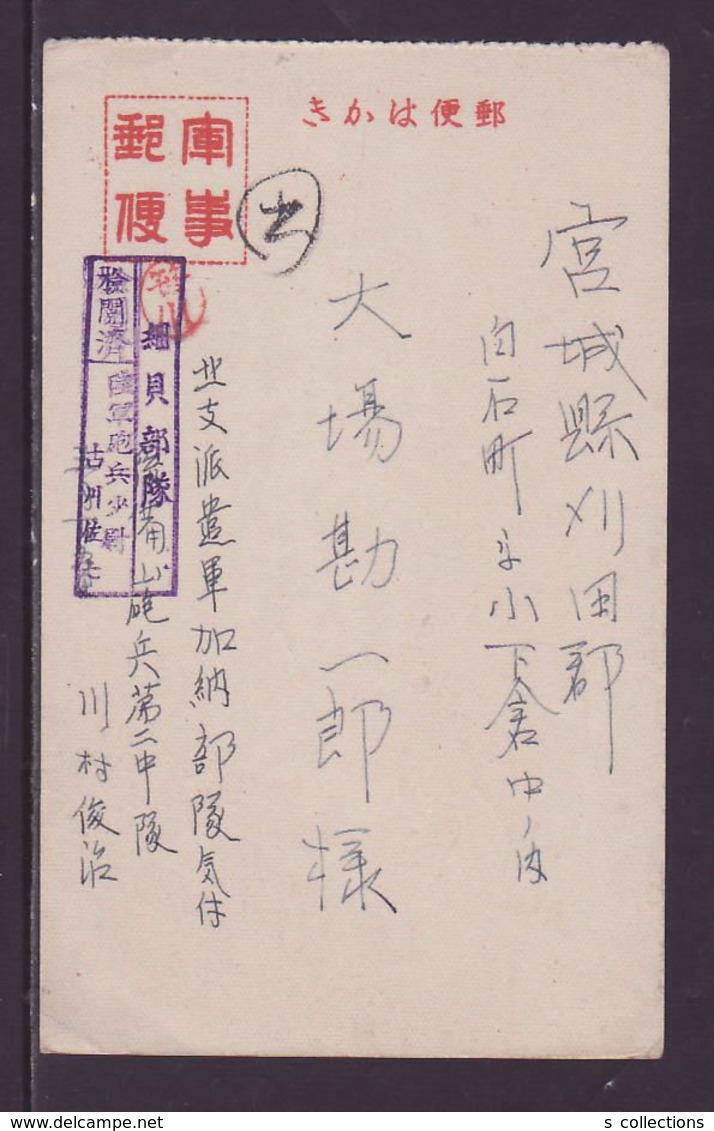 郵便はかき
軍事
郵便
宮城縣刈田郡
白石町字小下倉中ノ内
大場勘一郎様
北支派遣軍加納部隊気付
山砲兵第二中隊
川村俊治
細貝部隊
検閲済
陸軍砲兵少尉
s collections